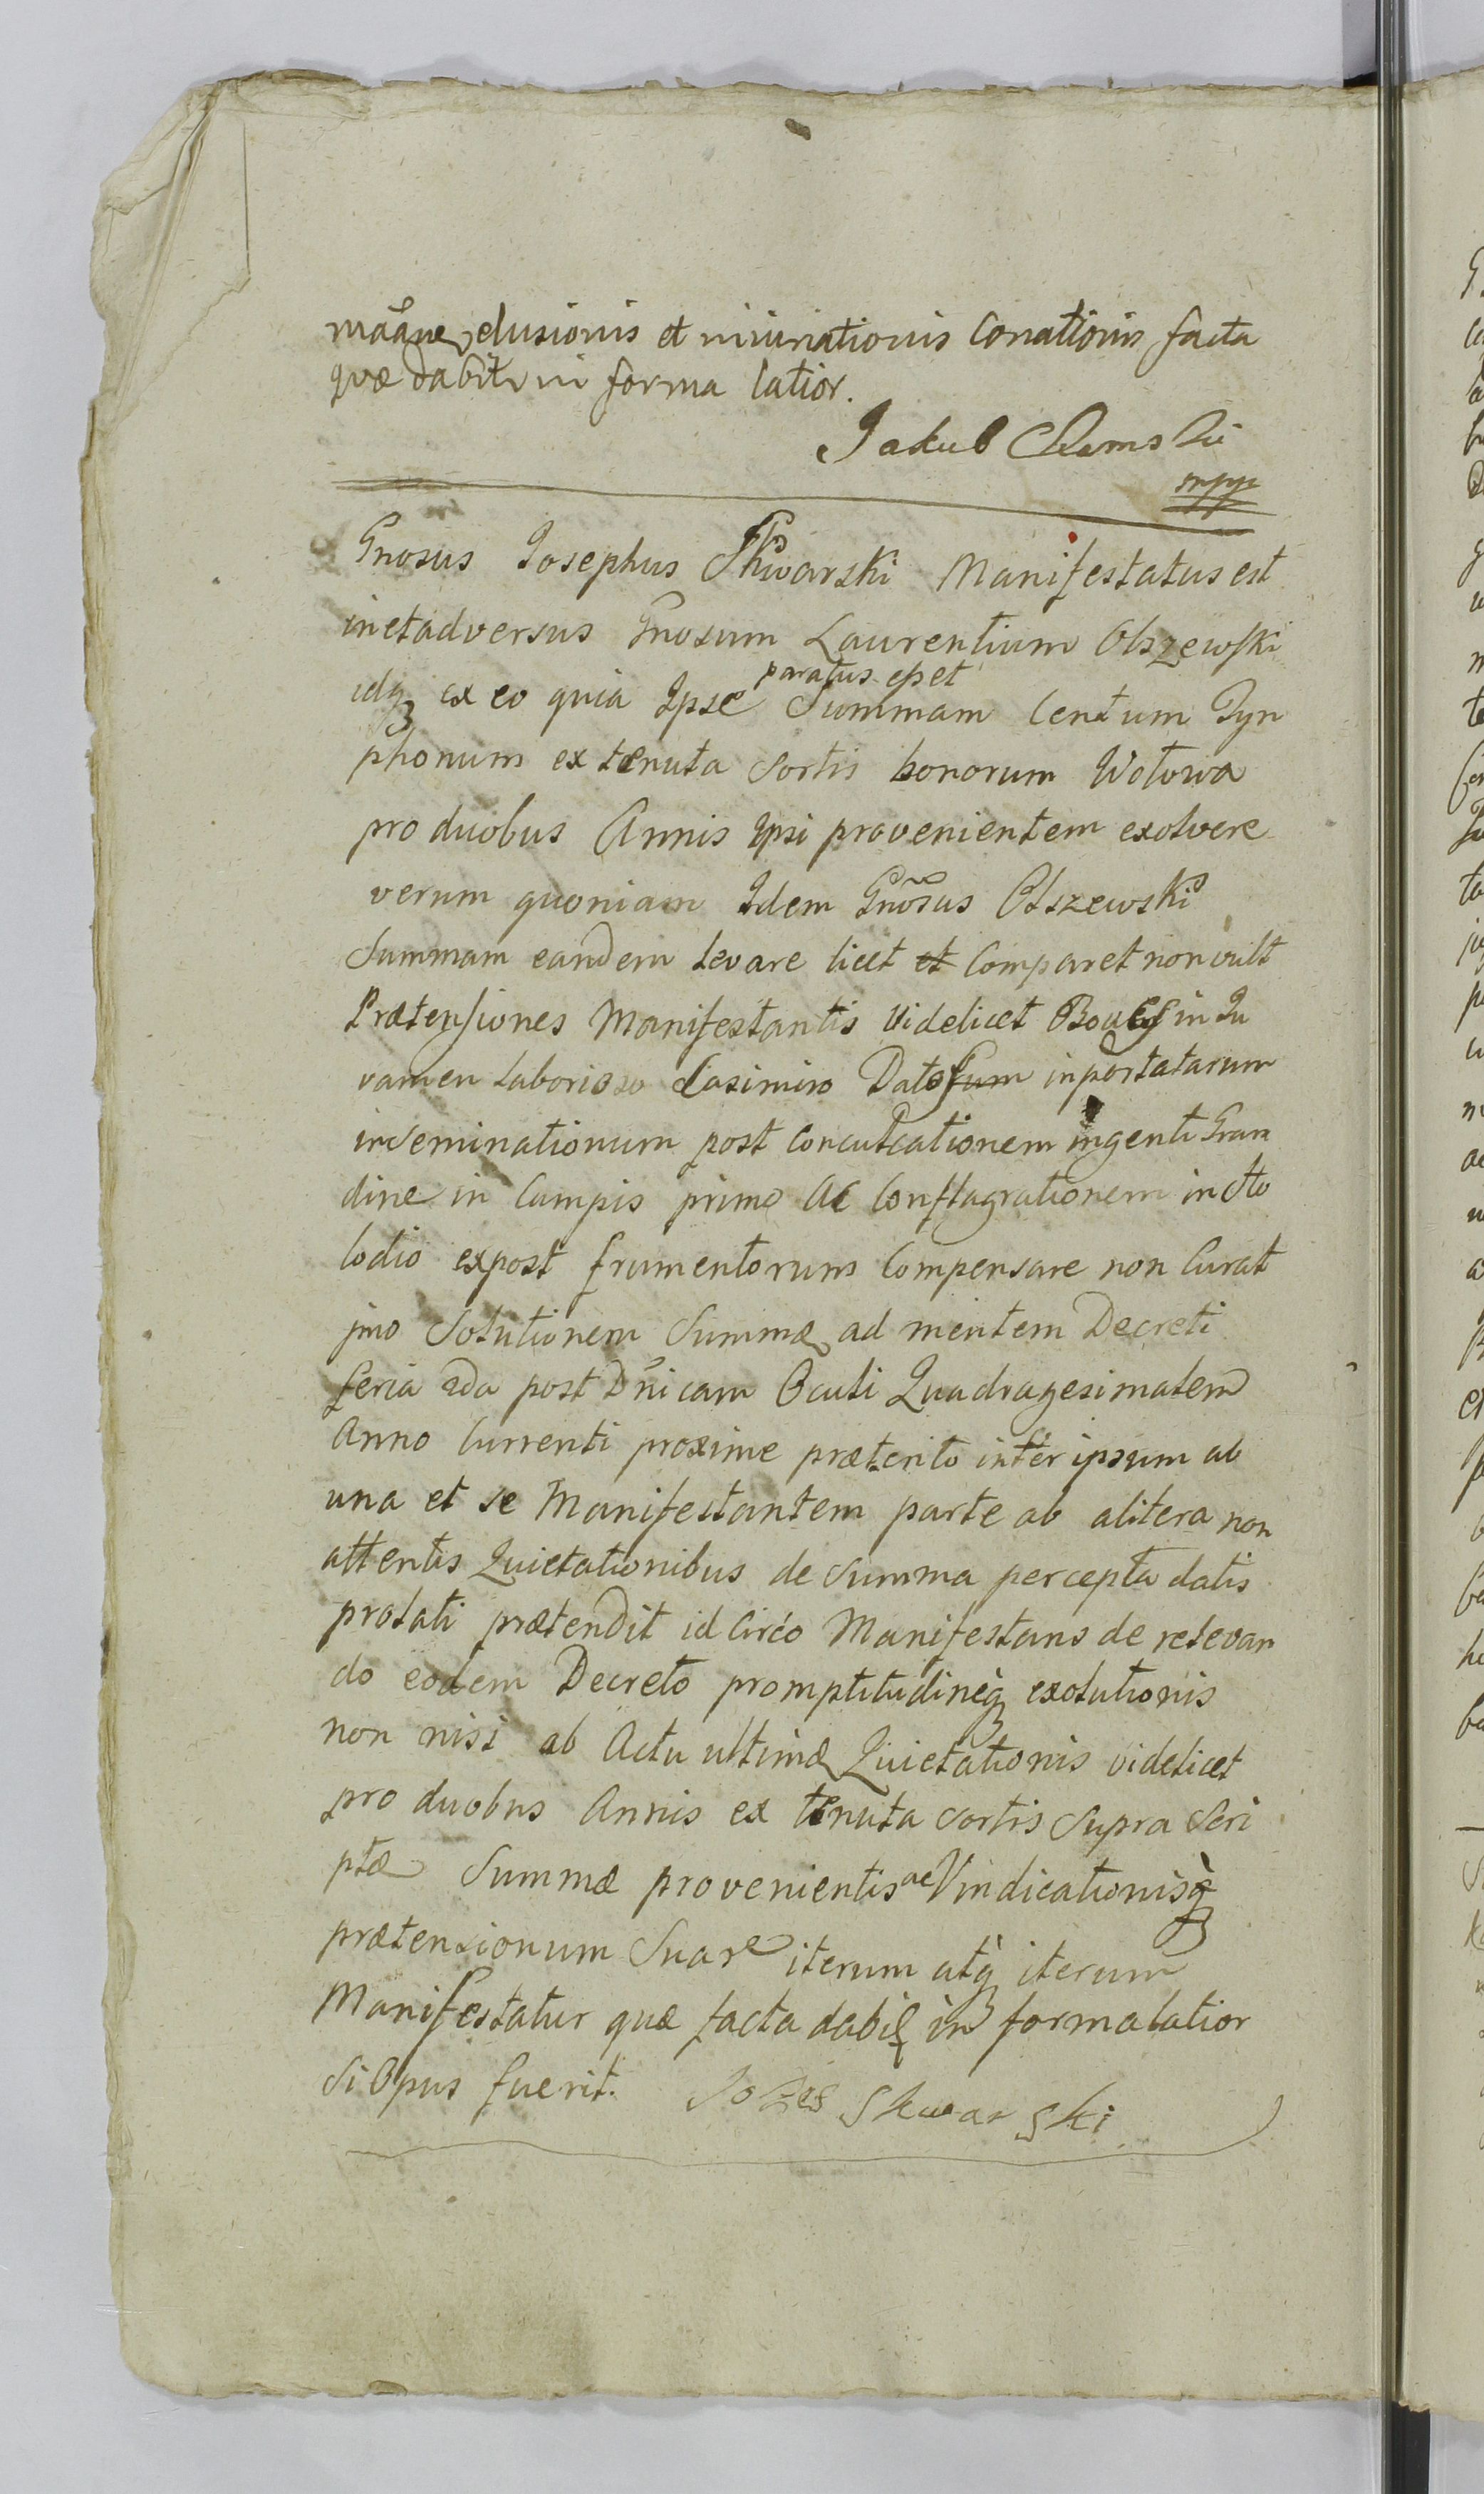 elusionis et iniuriationis Conationis facta
quæ dabitr in forma latior.
Jakub Chamski
mpp
Gnosus Josephus Skwarski Manifestatus est
in et adversus Gnosum Laurentium Olszewski
idq ex eo quia Ipse paratus esset Summam Centum Tyn
phonum ex tenuta Sortis bonorum Wolowa
pro duobus Annis Ipsi provenientem exolvere
verum quoniam Idem Gnosus Olszewski
Summam eandem levare licet et Comparet non vult
Prætensiones Manifestantis Videlicet Boves in Iu
vamen Laborioso Casimiro Datos inportatarum
inseminationum post Conculcationem ingenti Gran
dine in Campis primo ac Conflagrationem in Sto
lodio expost frumentorum Compensare non Curat
imo Solutionem Summæ ad mentem Decreti
feria 2da post Dnicam Oculi Quadragesimalem
Anno Currenti proxime præterito inter ipsum ab
una et se Manifestantem parte ab alitera non
attentis Quietationibus de Summa percepta datis
prolati prætendit id Circo Manifestans de relevan
do eodem Decreto promptitudineq exolutionis
non nisi ab Actu ultimæ Quietationis videlicet
pro duobus Annis ex tenuta Sortis Supra Scri
ptæ Summæ provenientis ac Vindicationisq
prætensionum Suar iterum atq iterum
Manifestatur quæ facta dabit in forma latior
Si Opus fuerit. Jozef Skwarski